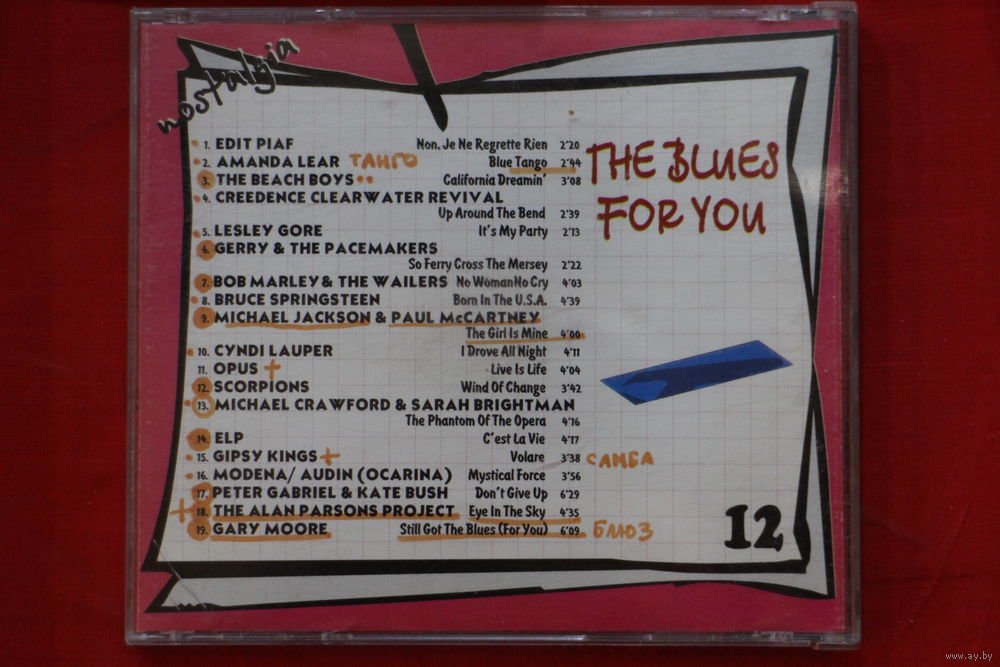 nostalgia
1. EDIT PIAF Non, Je Ne Regrette Rien 2'20
2. AMANDA LEAR ТАНГО Blue Tango 2'44
3. THE BEACH BOYS California Dreamin' 3'08
4. CREEDENCE CLEARWATER REVIVAL
Up Around The Bend 2'39
5. LESLEY GORE It's My Party 2'13
6. GERRY & THE PACEMAKERS
So Ferry Cross The Mersey 2'22
7. BOB MARLEY & THE WAILERS No Woman No Cry 4'03
8. BRUCE SPRINGSTEEN Born In The U.S.A. 4'39
9. MICHAEL JACKSON & PAUL McCARTNEY
The Girl Is Mine 4'00
10. CYNDI LAUPER I Drove All Night 4'11
11. OPUS + Live Is Life 4'04
12. SCORPIONS Wind Of Change 3'42
13. MICHAEL CRAWFORD & SARAH BRIGHTMAN
The Phantom Of The Opera 4'16
14. ELP C'est La Vie 4'17
15. GIPSY KINGS + Volare 3'38 САМБА
16. MODENA/ AUDIN (OCARINA) Mystical Force 3'56
17. PETER GABRIEL & KATE BUSH Don't Give Up 6'29
+ 18. THE ALAN PARSONS PROJECT Eye In The Sky 4'35
19. GARY MOORE Still Got The Blues (For You) 6'09 БЛЮЗ
THE BLUES
FOR YOU
12
www.ay.by